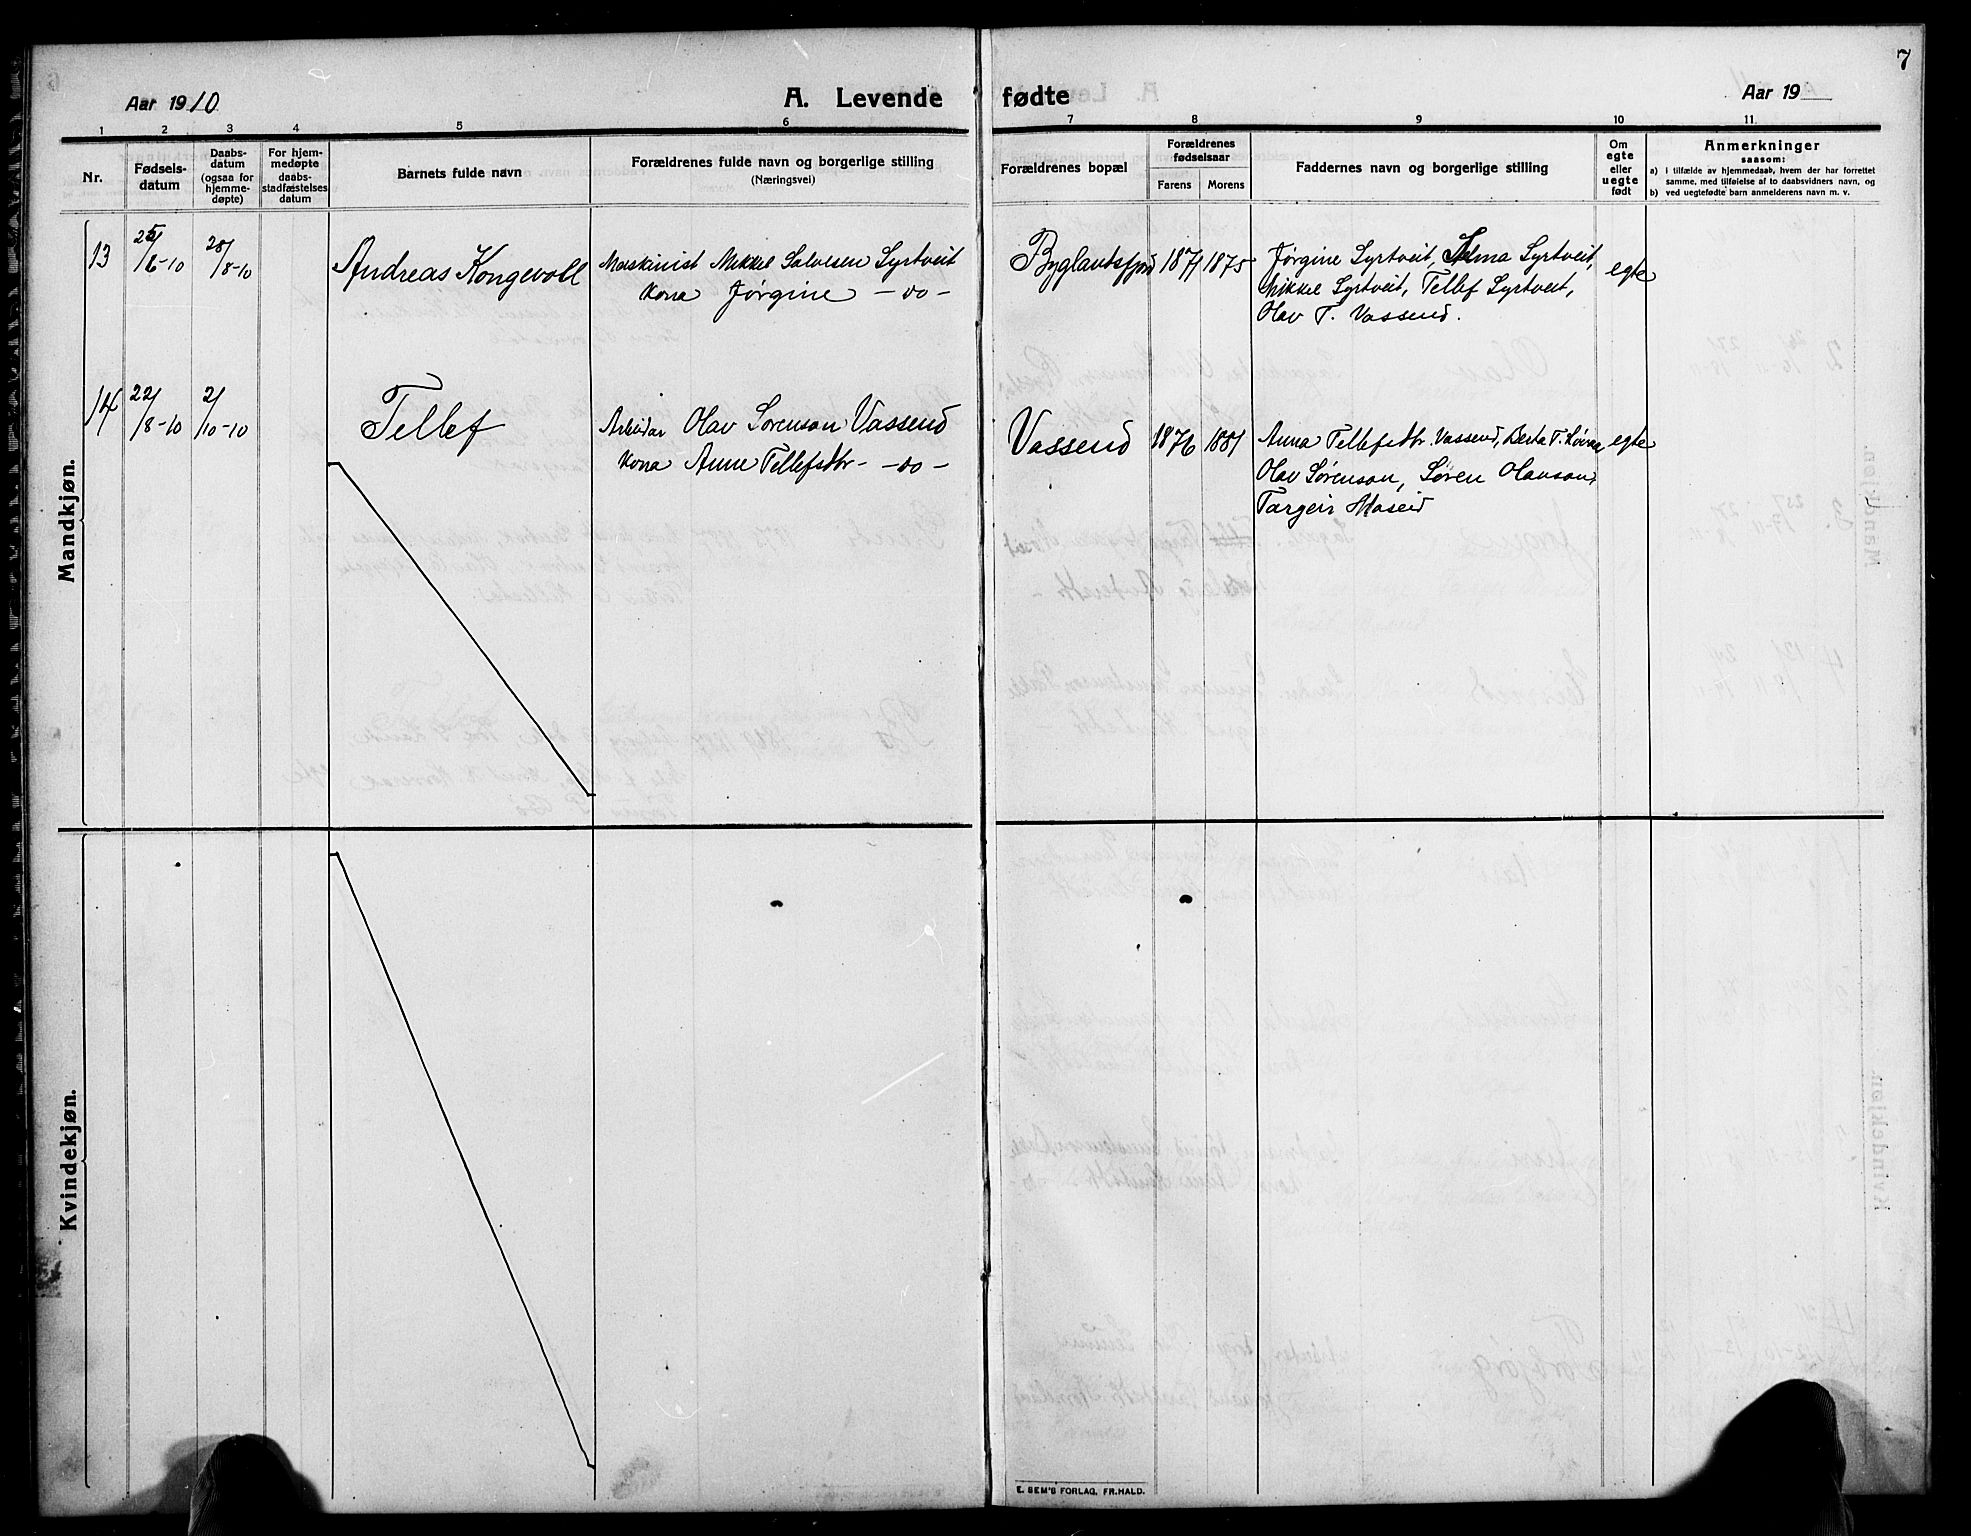 7
Aar 1910
A. Levende fødte
Aar 19
1 2 3 4 5 6 7 8 9 10 11
Nr.
Fødsels-
datum
Daabs-
datum
(ogsaa for
hjemme-
døpte)
For hjem-
medøpte
daabs-
stadfæstelses
datum
Barnets fulde navn
Forældrenes fulde navn og borgerlige stilling
(Næringsvei)
Forældrenes bopæl
Forældrenes
fødselsaar
Farens Morens
Faddernes navn og borgerlige stilling
Om
egte
eller
uegte
født
Anmerkninger
saasom:
a) i tilfælde av hjemmedaab, hvem der har forrettet
samme, med tilføielse af to daabsvidners navn, og
b) ved uegtefødte barn anmelderens navn m. v.
Mandkjøn.
13 25/6-10 28/8-10 Andreas Kongevoll Maskinist Mikkel Salvesen Syrtveit Byglandsfjord 1871 1875 Jørgine Syrtveit, Selma Syrtveit, egte
Kona Jørgine -do- Mikkel Syrtveit, Tellef Syrtveit,
Olav T. Vassend.
14 22/8-10 2/10-10 Tellef Arbeidar Olav Sørenson Vassend Vassend 1876 1881 Anna Tellefsdtr. Vassend, Berta T. egte
Kona Anne Tellefsdtr -do- Olav Sørenson, Søren Olavson,
Targeir Moseid
Kvindekjøn.
E. SEM'S FORLAG, FR.HALD.